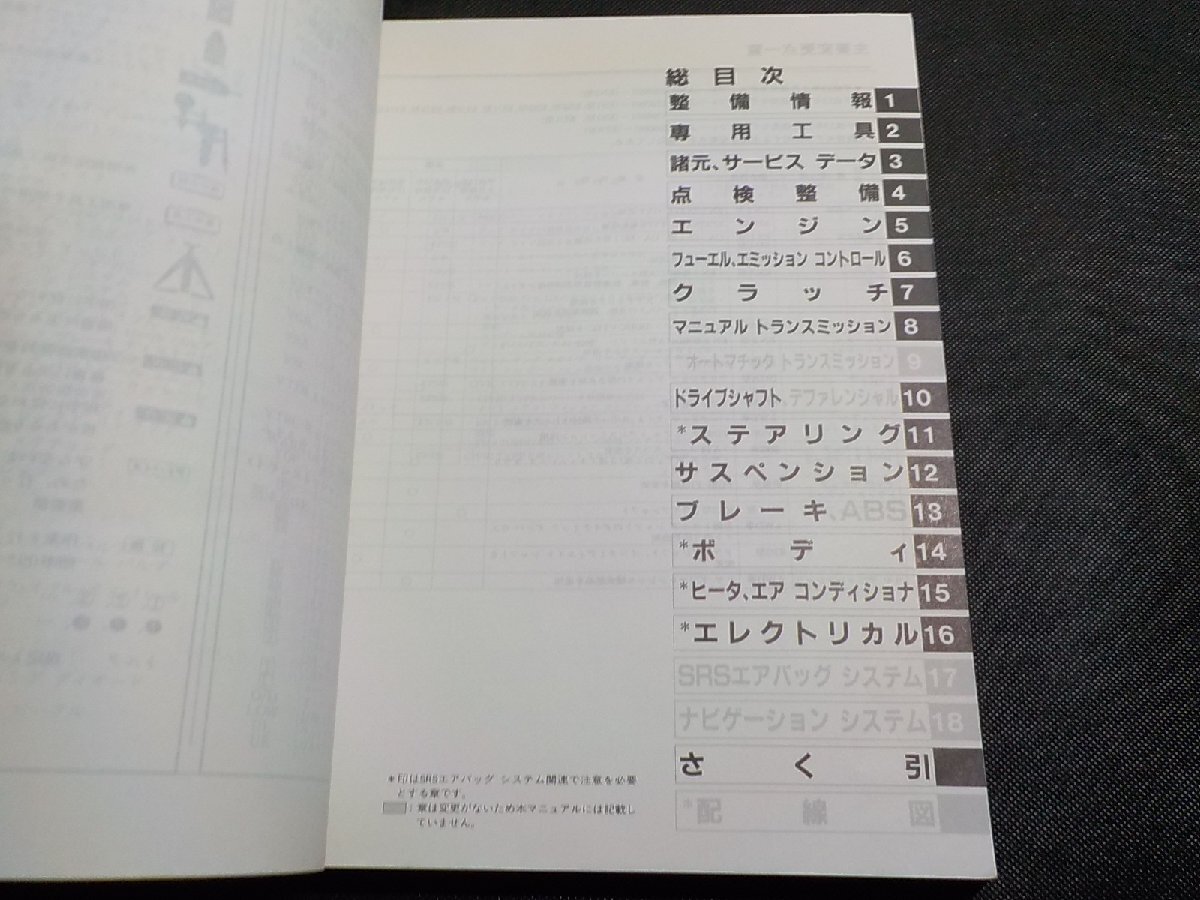 総目次
整備情報 1
専用工具 2
諸元、サービス データ 3
点検整備 4
エンジン 5
フューエル、エミッション コントロール 6
クラッチ 7
マニュアル トランスミッション 8
オートマチック トランスミッション 9
ドライブシャフト、デファレンシャル 10
*ステアリング 11
サスペンション 12
ブレーキ、ABS 13
*ボディ 14
*ヒータ、エア コンディショナ 15
*エレクトリカル 16
SRSエアバッグ システム 17
ナビゲーション システム 18
さく引
*配線図
*印はSRSエアバッグ システム関連で注意を必要
とする章です。
：章は変更がないため本マニュアルには記載し
ていません。